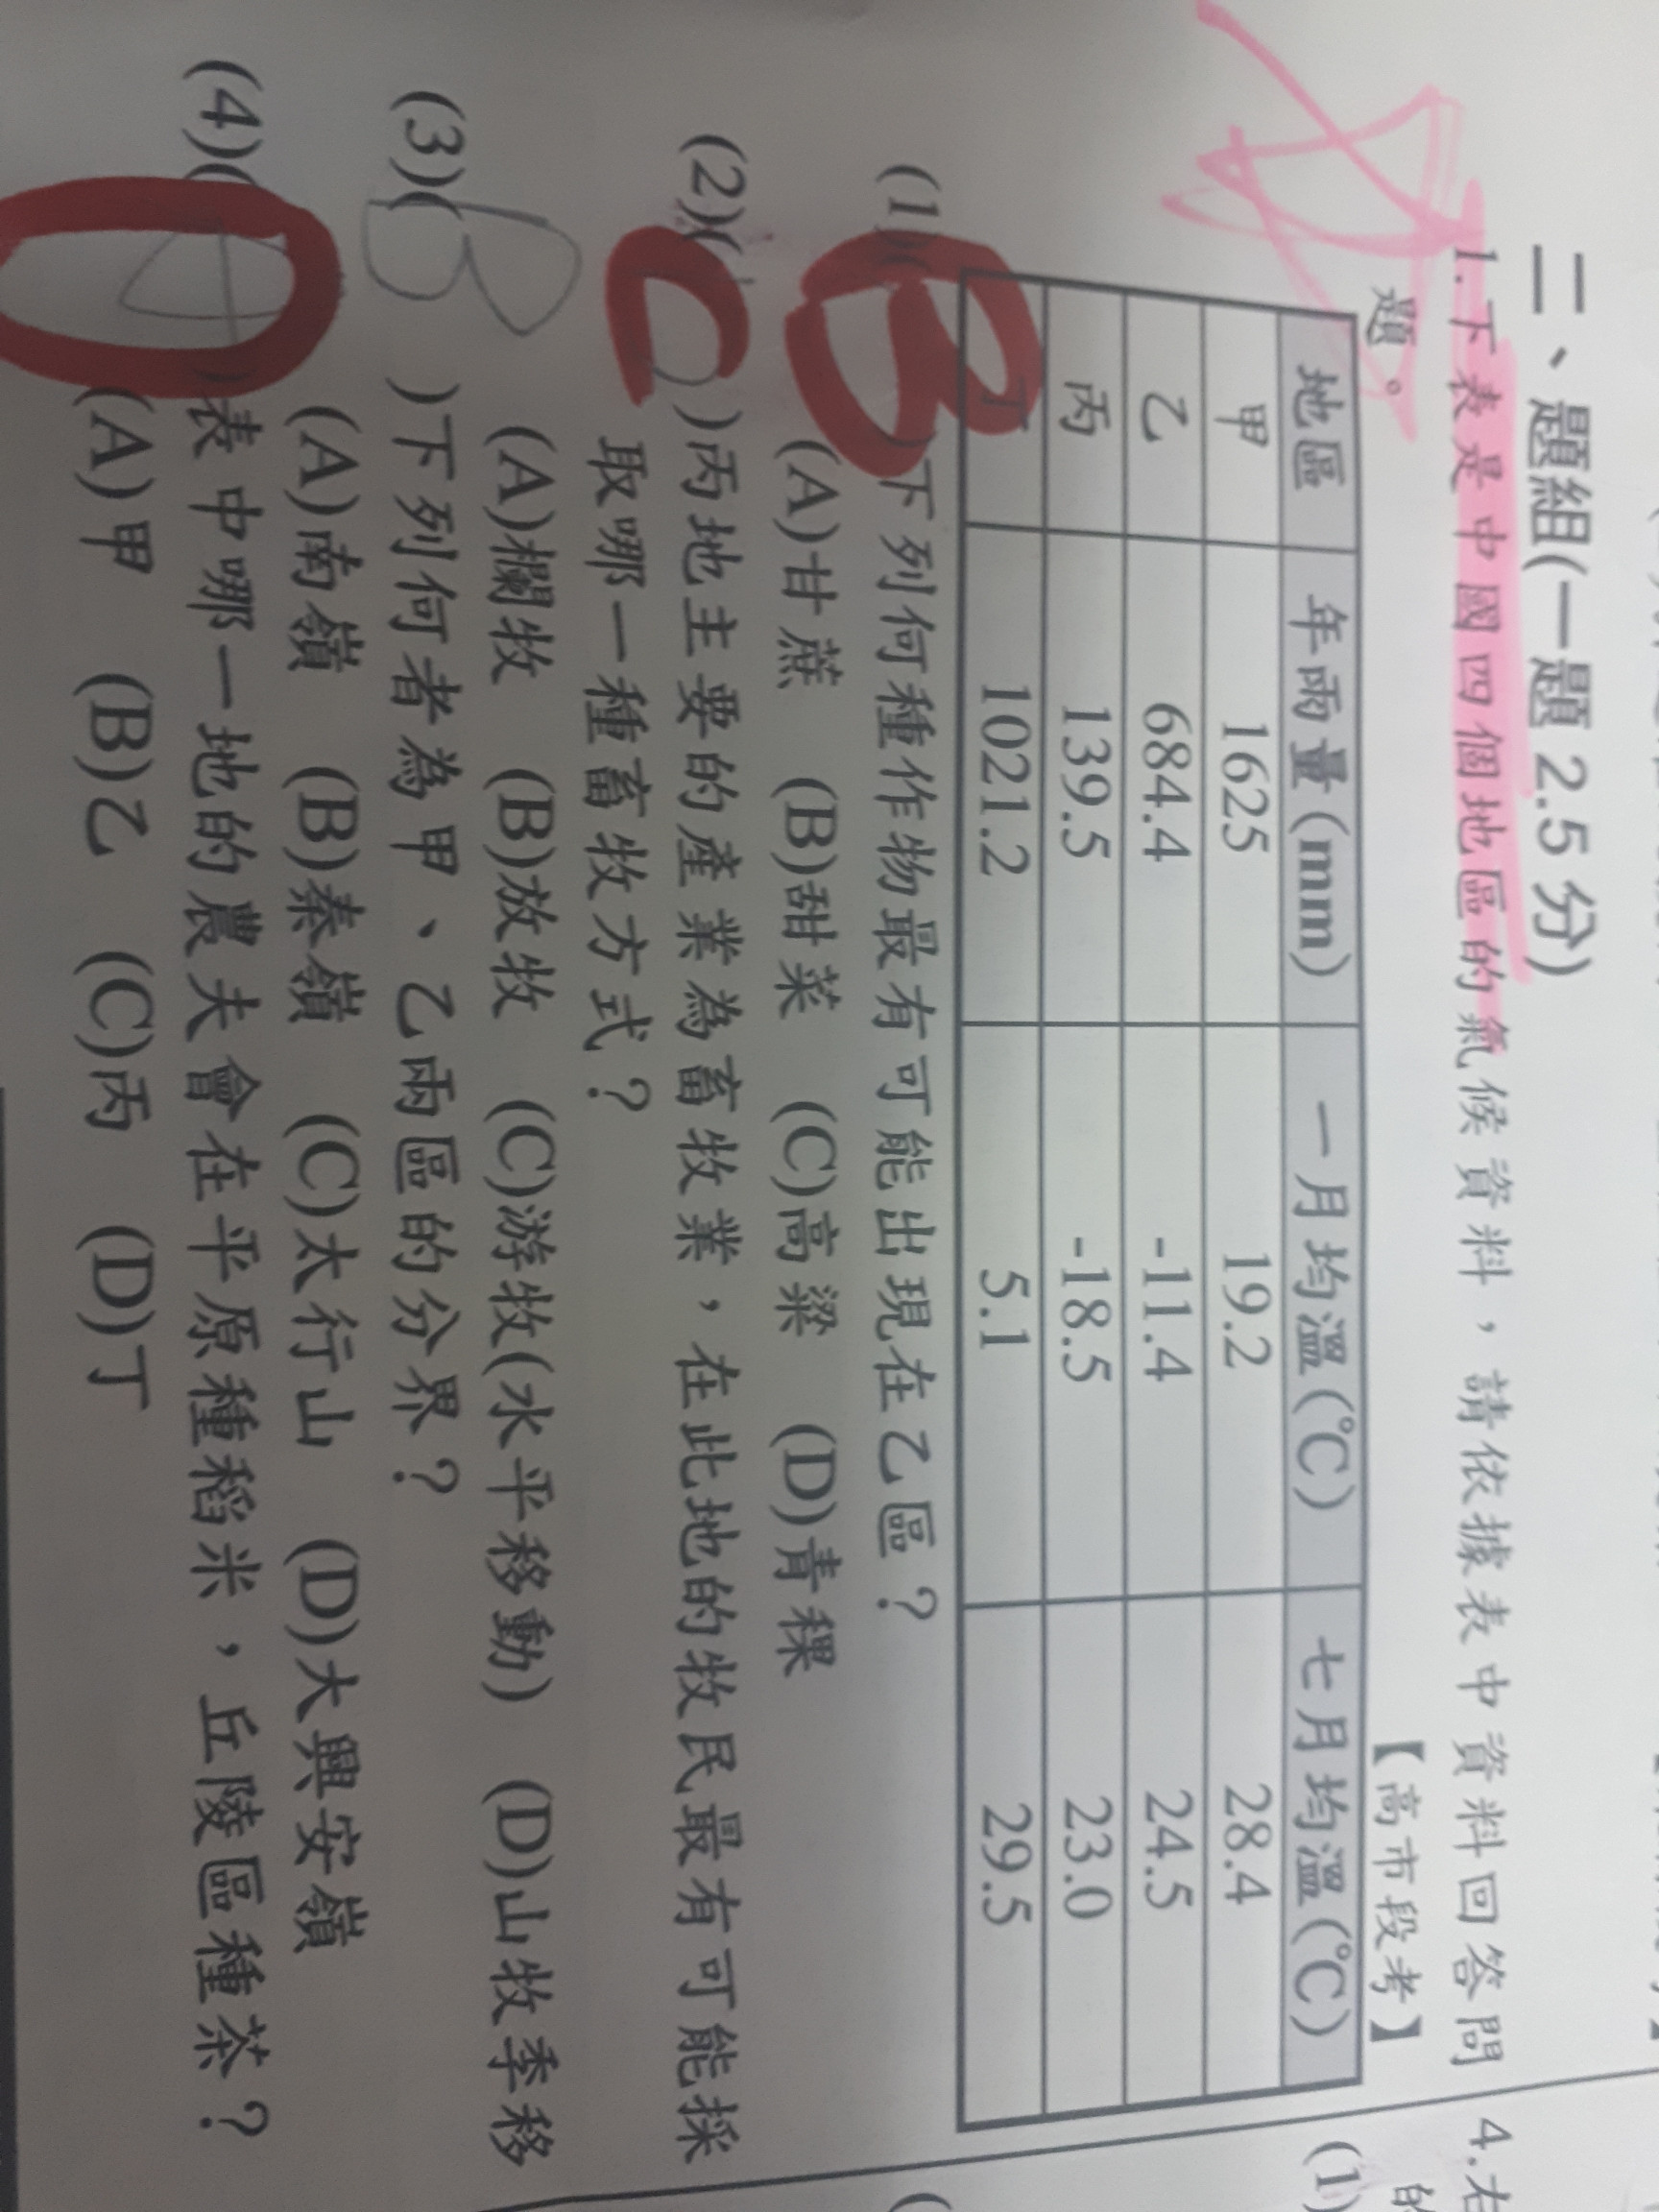 二、題組(一題 2.5 分)
1.下表是中國四個地區的氣候資料，請依據表中資料回答問
題。 【高市段考】
地區 年雨量(mm) 一月均溫(℃) 七月均溫(℃)
甲 1625 19.2 28.4
乙 684.4 -11.4 24.5
丙 139.5 -18.5 23.0
丁 1021.2 5.1 29.5
(1)(B)下列何種作物最有可能出現在乙區？
(A)甘蔗 (B)甜菜 (C)高粱 (D)青稞
(2)(C)丙地主要的產業為畜牧業，在此地的牧民最有可能採
取哪一種畜牧方式？
(A)欄牧 (B)放牧 (C)游牧(水平移動) (D)山牧季移
(3)(B)下列何者為甲、乙兩區的分界？
(A)南嶺 (B)秦嶺 (C)太行山 (D)大興安嶺
(4)( )表中哪一地的農夫會在平原種稻米，丘陵區種茶？
(A)甲 (B)乙 (C)丙 (D)丁
4.右
(1)
的